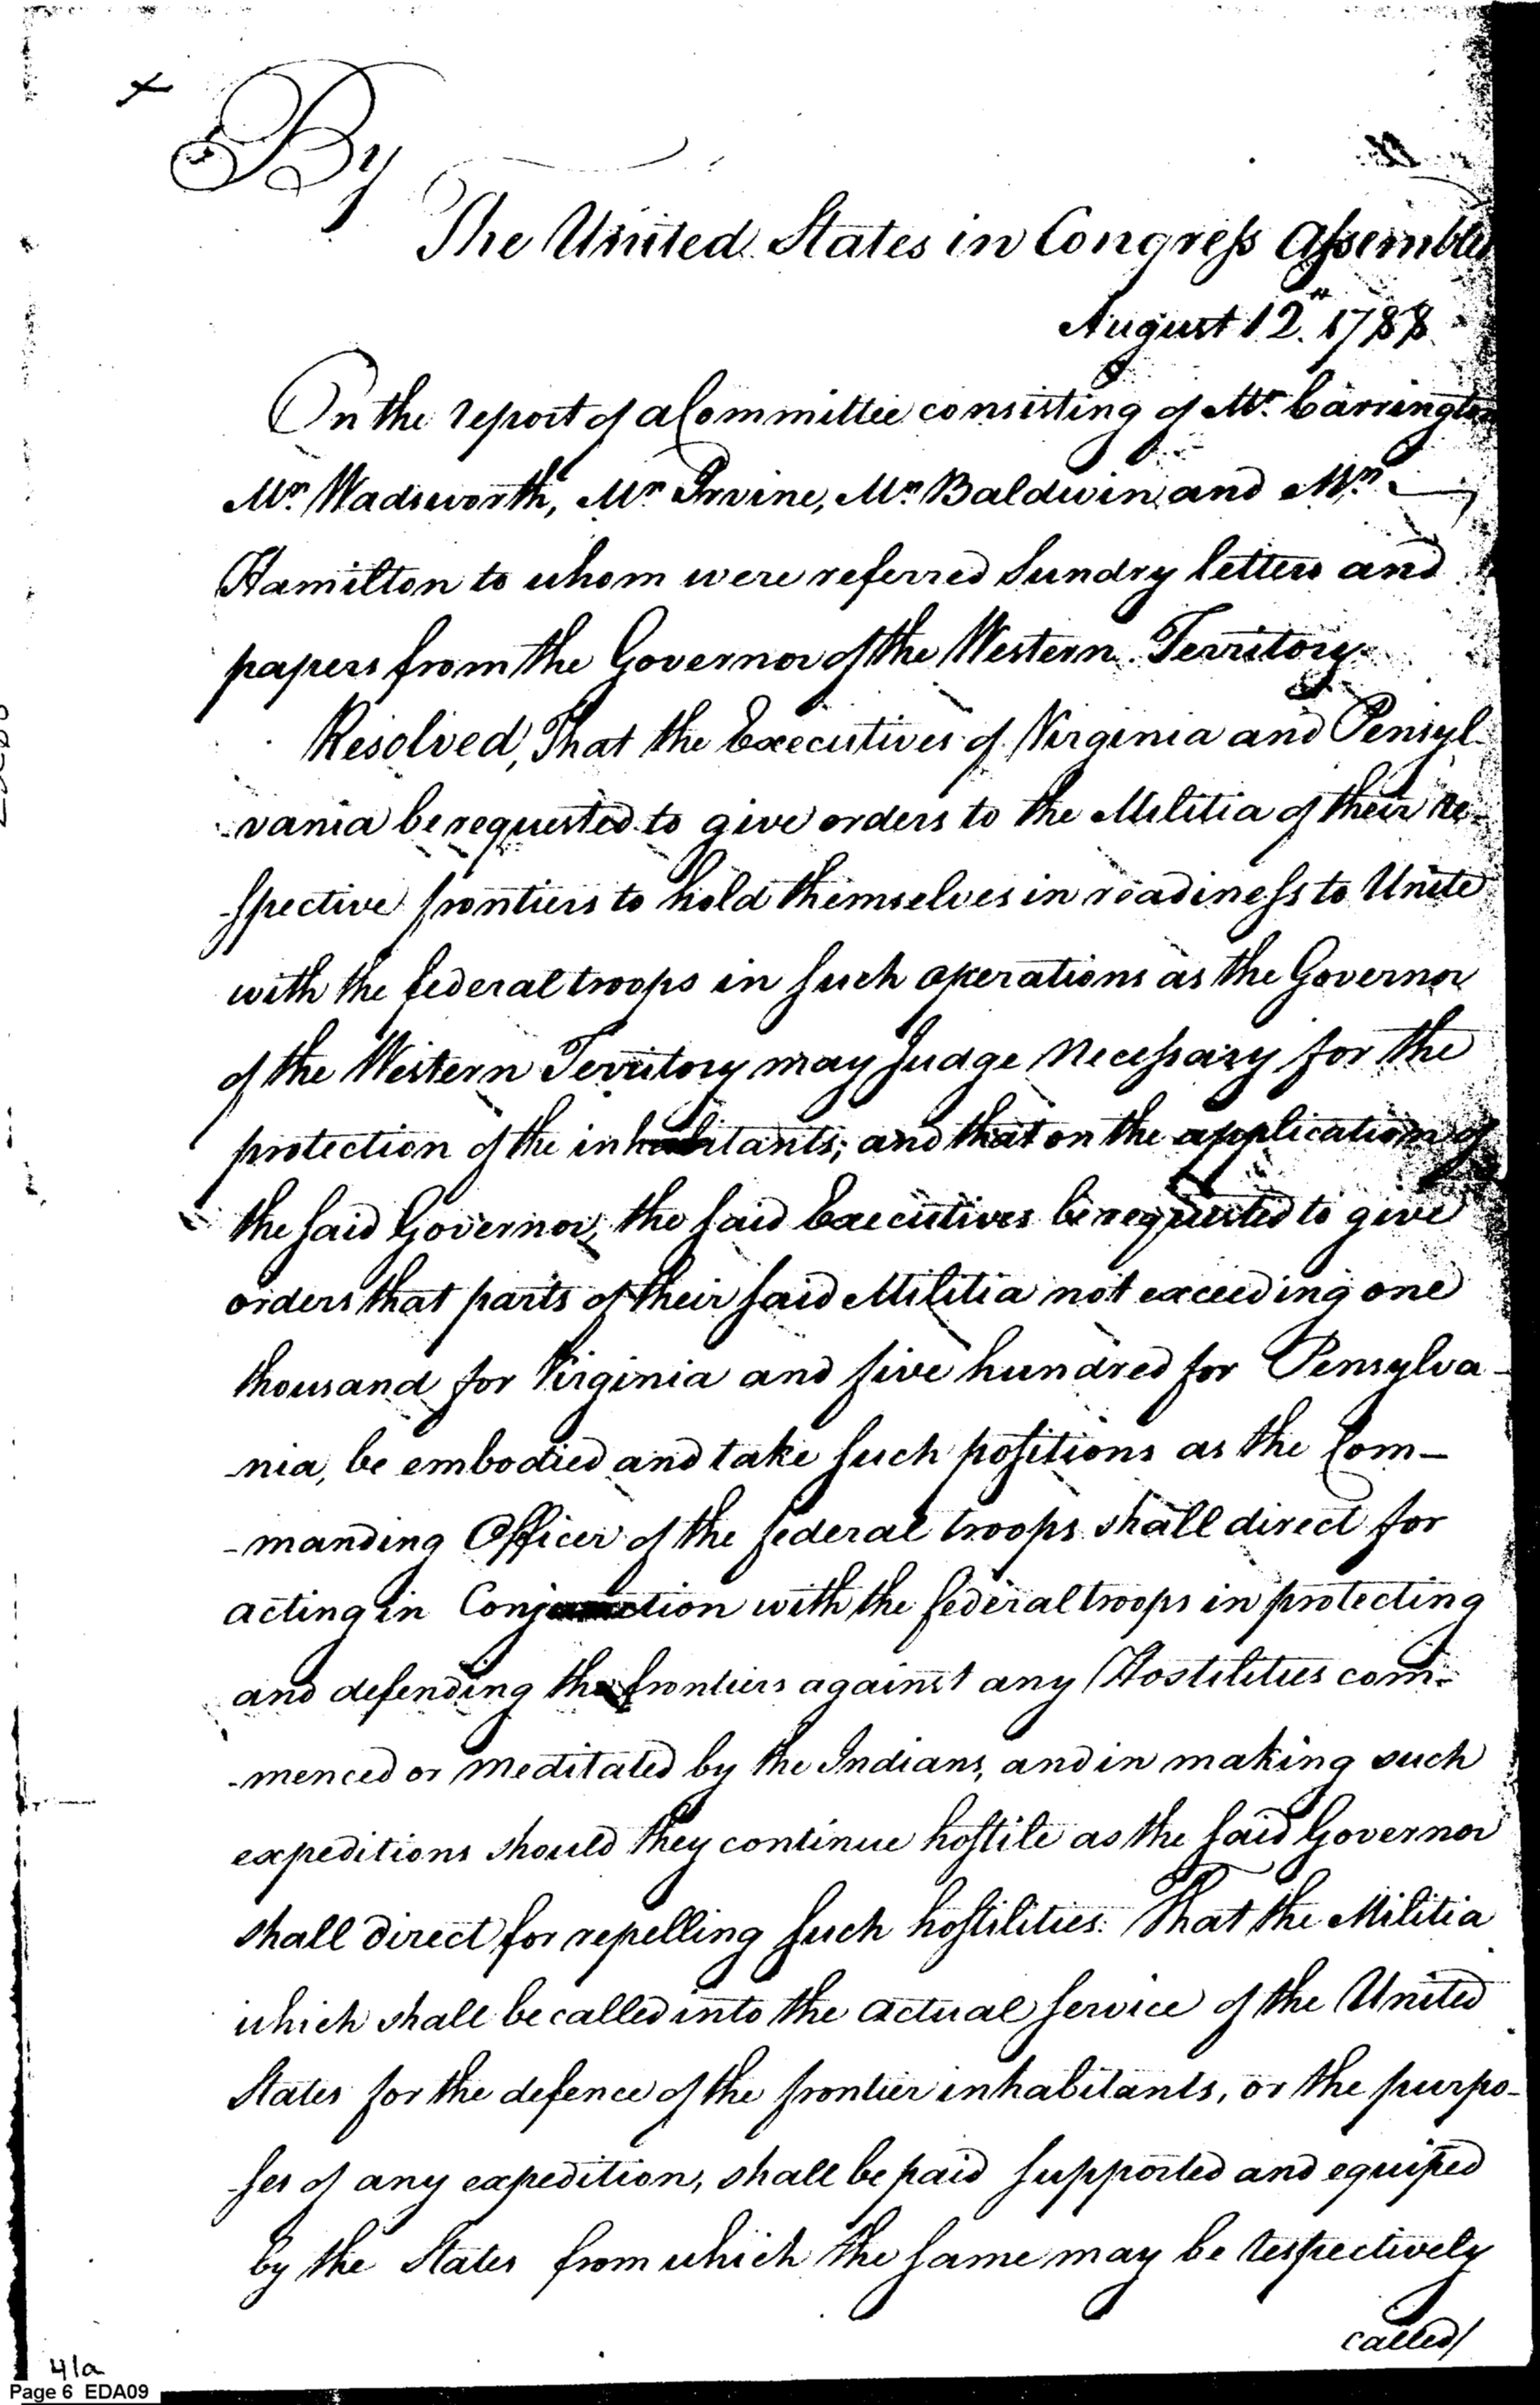 By
The United States in Congress Assembled
August 12th. 1788.
On the report of a Committee consisting of Mr. Carrington
Mr. Wadsworth, Mr. Irvine, Mr. Baldwin and Mr. —
Hamilton to whom were referred Sundry letters and
papers from the Governor of the Western Territory.
Resolved, That the Executives of Virginia and Pensyl-
-vania be requested to give orders to the Militia of their re-
-spective frontiers to hold themselves in readiness to Unite
with the federal troops in such operations as the Governor
of the Western Territory may Judge Necessary for the
protection of the inhabitants; and that on the application of
the said Governor, the said Executives be requested to give
orders that parts of their said Militia not exceeding one
thousand for Virginia and five hundred for Pensylva-
-nia, be embodied and take such positions as the Com-
-manding Officer of the federal troops shall direct for
acting in Conjunction with the federal troops in protecting
and defending the frontiers against any Hostilities com-
-menced or Meditated by the Indians, and in making such
expeditions should they continue hostile as the said Governor
shall direct for repelling such hostilities. That the Militia
which shall be called into the actual service of the United
States for the defence of the frontier inhabitants, or the purpo-
-ses of any expedition, shall be paid supported and equiped
by the States from which the same may be respectively
called/
41a
Page 6 EDA09